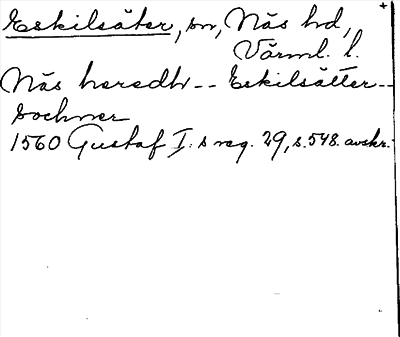 Eskilsäter, sn, Näs hd, +
Värml. l.
Näs heredh -- Eskilsätter --
sochner
1560 Gustaf I:s reg. 29, s. 548. avskr.